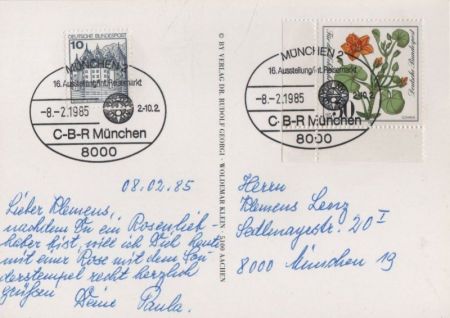 10
DEUTSCHE BUNDESPOST
MÜNCHEN 2
16. Ausstellung/Int. Reisemarkt
-8.-2.1985
2-10.2.
C-B-R München
8000
MÜNCHEN 2
16. Ausstellung/Int. Reisemarkt
-8.-2.1985
2-10.2.
C-B-R München
8000
Deutsche Bundespost
© BY VERLAG DR. RUDOLF GEORGI · WOLDEMAR KLEIN · 5100 AACHEN
08.02.85
Lieber Klemens,
nachdem Du ein Rosenlieb-
haber bist, will ich Dich heute
mit einer Rose mit dem Son
derstempel recht herzlich
grüßen
Deine Paula.
Herrn
Klemens Lenz
Sedlmayrstr. 20 I
8000 München 19